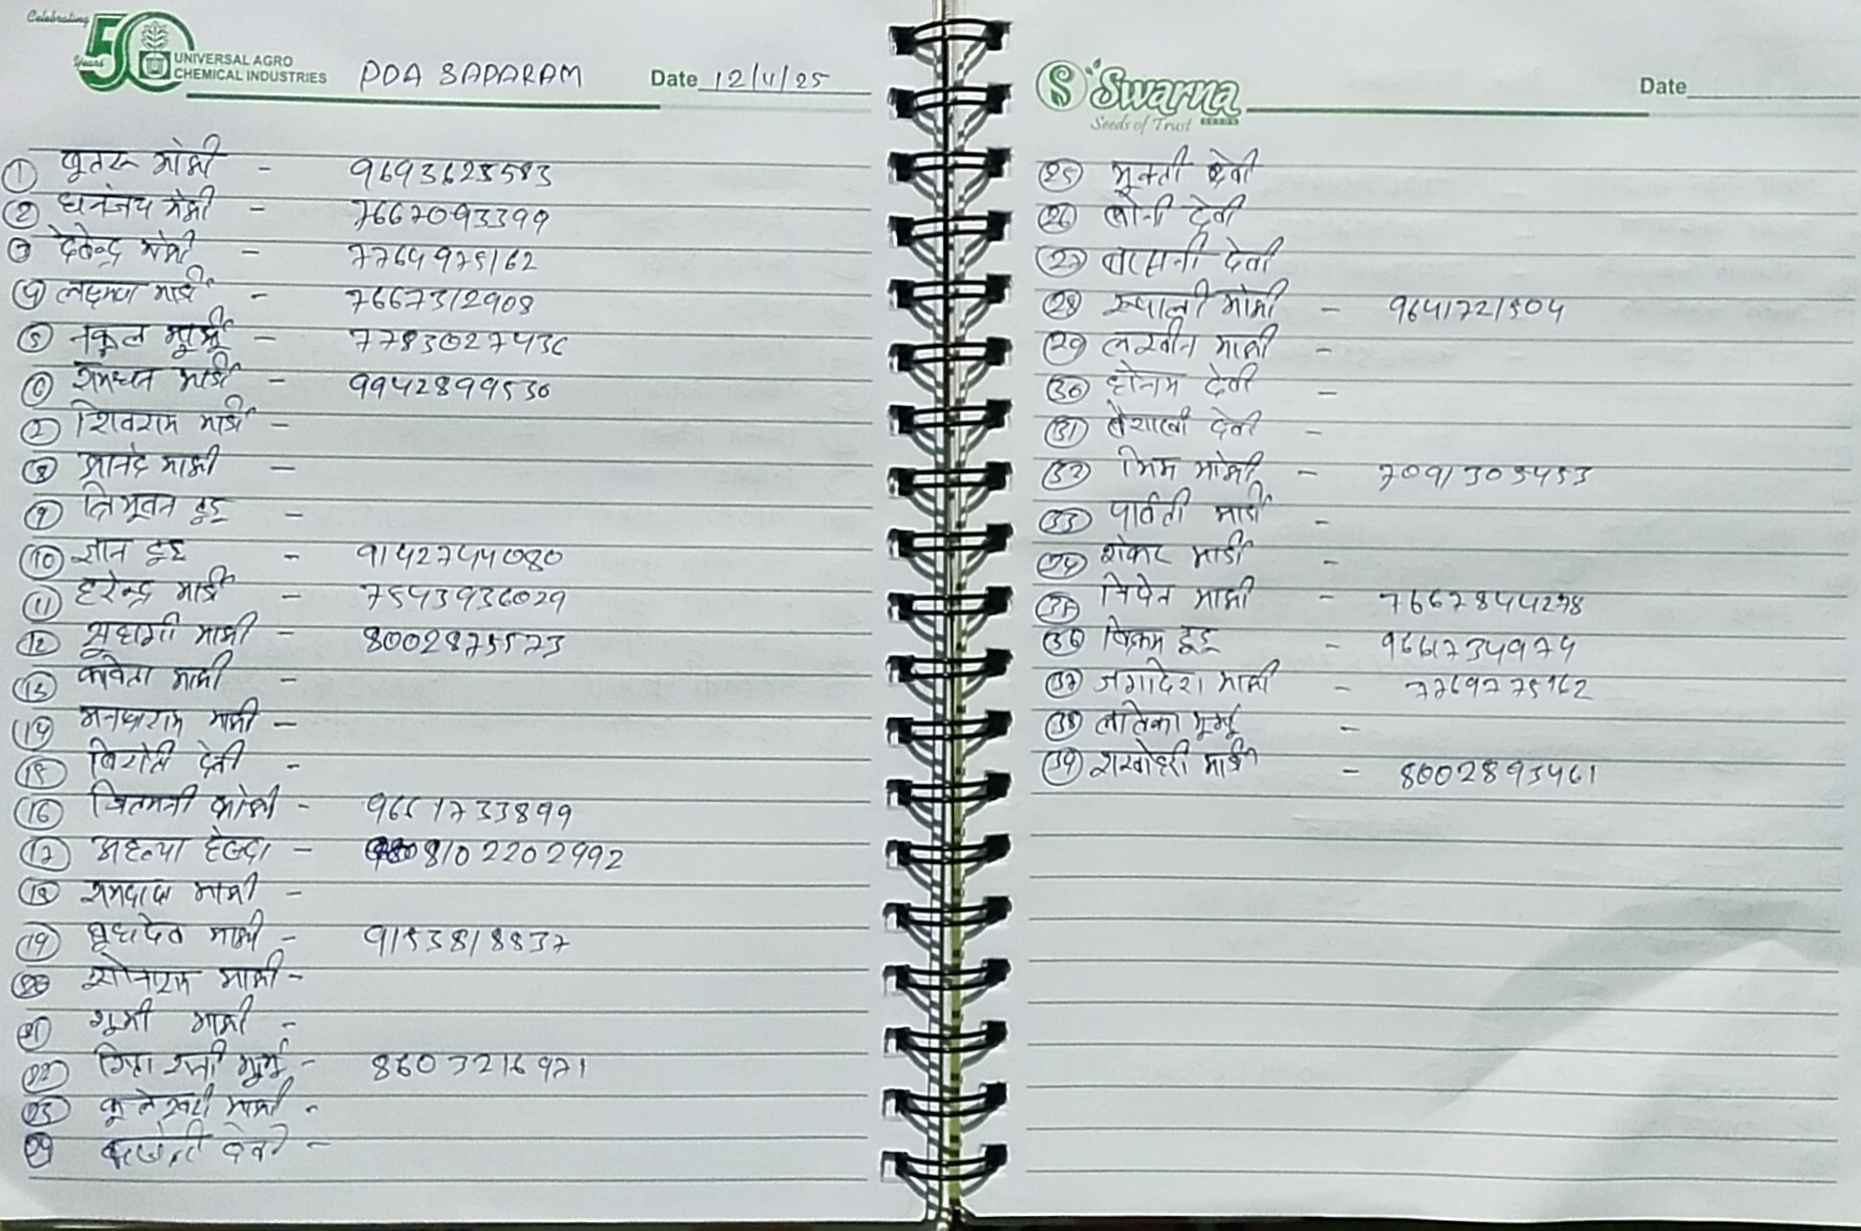 Celebrating
50 Years
UNIVERSAL AGRO
CHEMICAL INDUSTRIES
PDA SAPARAM
Date 12/4/25
① माझी - 9693623583
② धनंजय माझी - 7667093399
③ देवेन्द्र माझी - 7764975162
④ लक्ष्मण मार्डी - 7667312908
⑤ नकुल मुर्मू - 7783027436
⑥ रामधन मार्डी - 9942899530
⑦ शिवराम मार्डी -
⑧ आनंद माझी -
⑨ त्रिभुवन टुडू -
⑩ ज्ञान टुडू - 9142744080
⑪ हरेन्द्र मार्डी - 7543936029
⑫ सुहागी माझी - 8002875573
⑬ कविता माझी -
⑭ माझी -
⑮ देवी -
⑯ - 9661733899
⑰ अहल्या हेम्ब्रम - 8102202992
⑱ रामदास माझी -
⑲ बुधदेव माझी - 9153818837
⑳ सोनाराम माझी -
㉑ माझी -
㉒ मुर्मू - 8603216971
㉓ माझी -
㉔ देवी -
Swarna
SEEDS
Seeds of Trust
Date
㉕ मुक्ती देवी
㉖ देवी
㉗ देवी
㉘ रूपाली माझी - 9641721504
㉙ माझी -
㉚ देवी -
㉛ बैशाखी देवी -
㉜ भिम माझी - 7091305453
㉝ पार्वती मार्डी -
㉞ शंकर मार्डी -
㉟ माझी - 7667844278
㊱ विक्रम टुडू - 9661734974
㊲ जगदिश माझी - 7769775162
㊳ लतिका मुर्मू -
㊴ मार्डी - 8002893461